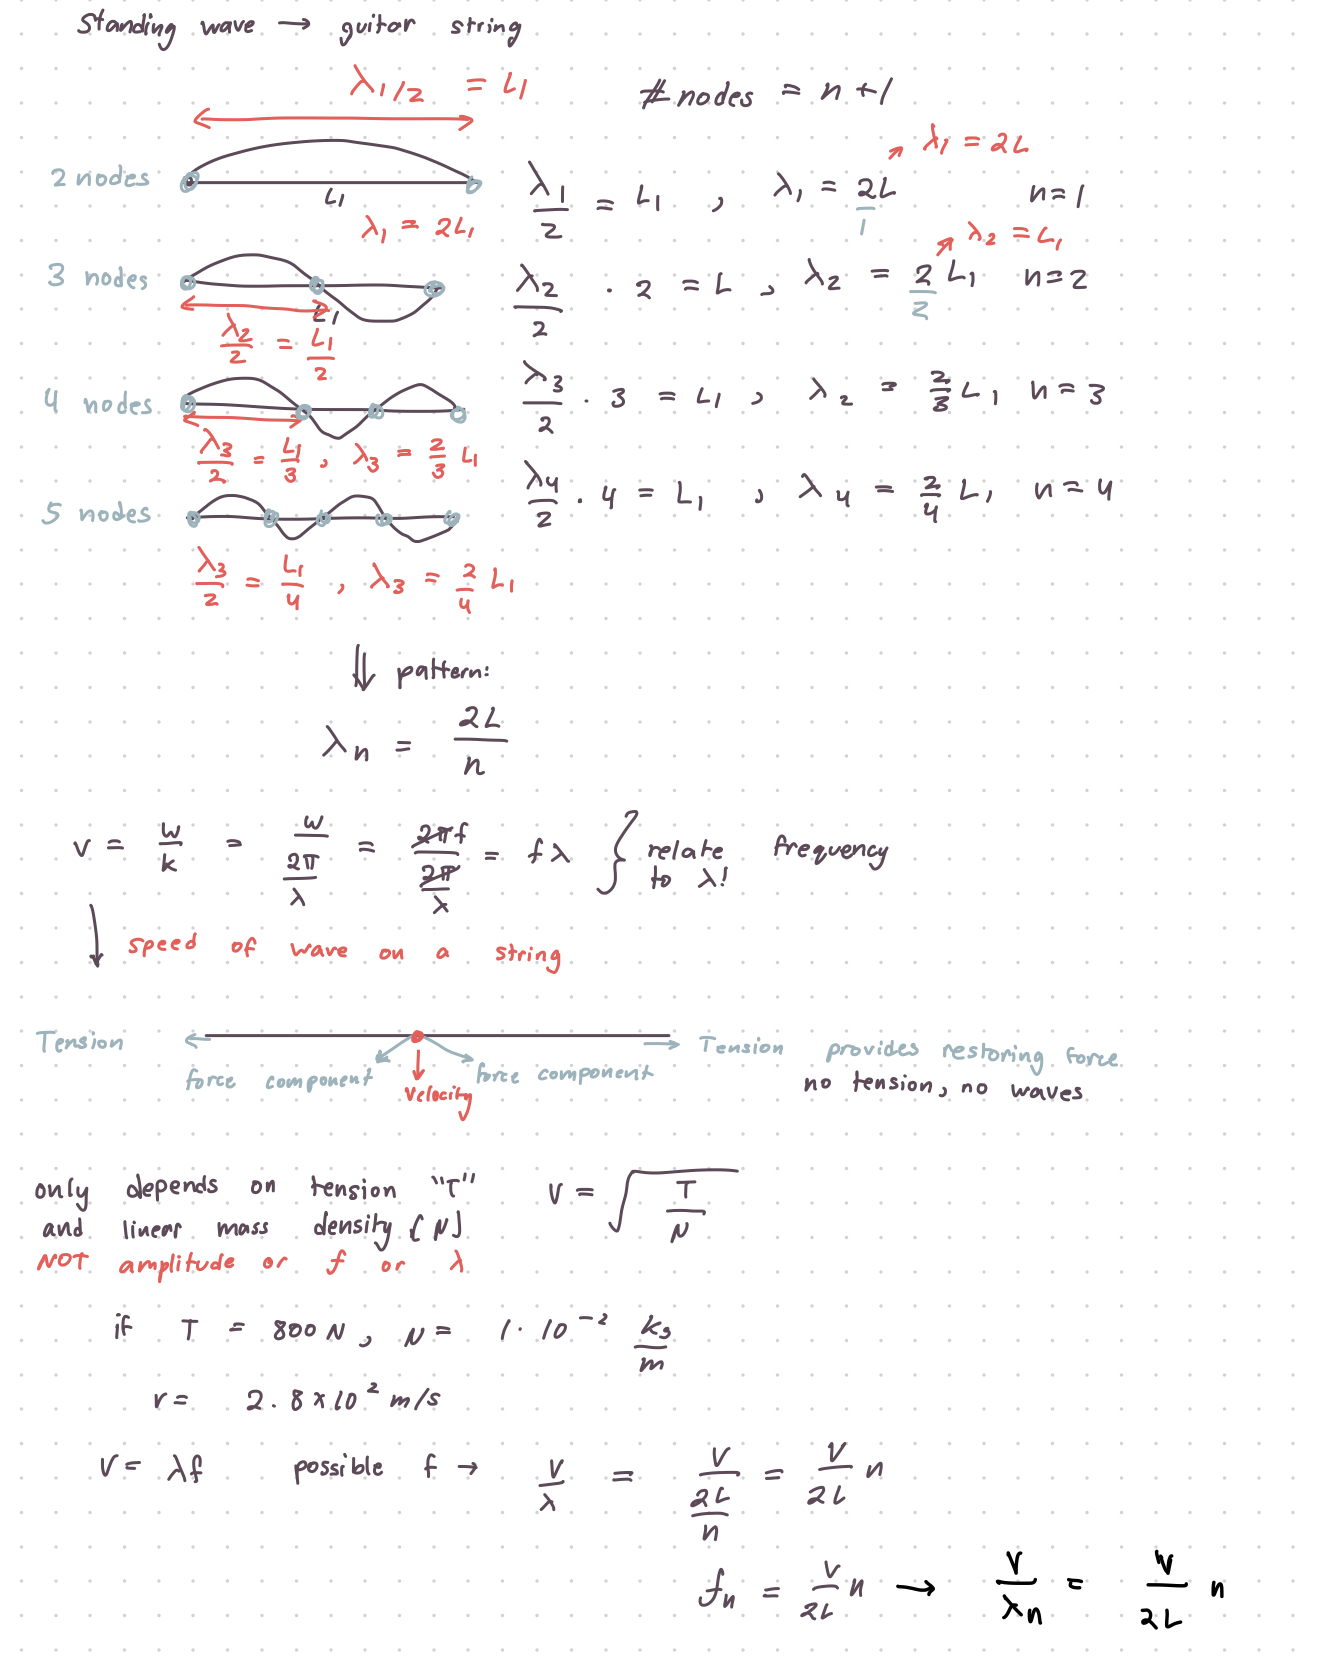 Standing wave → guitar string
λ1/2 = L1
# nodes = n+1
2 nodes
L1
λ1 = 2L1
λ1/2 = L1 , λ1 = 2L/1 n=1
λ1 = 2L
3 nodes
L1
λ2/2 = L1/2
λ2/2 · 2 = L , λ2 = 2/2 L1 n=2
λ2 = L1
4 nodes
λ3/2 = L1/3 , λ3 = 2/3 L1
λ3/2 · 3 = L1 , λ2 = 2/3 L1 n=3
5 nodes
λ3/2 = L1/4 , λ3 = 2/4 L1
λ4/2 · 4 = L1 , λ4 = 2/4 L1 n=4
⇓ pattern:
λn = 2L/n
v = w/k = w/(2π/λ) = 2πf/(2π/λ) = fλ } relate frequency
to λ!
speed of wave on a string
Tension
force component
velocity
force component
Tension provides restoring force
no tension, no waves
only depends on tension "T"
and linear mass density [N]
NOT amplitude or f or λ
v = √(T/N)
if T = 800 N, N = 1·10⁻² kg/m
v = 2.8×10² m/s
V = λf possible f → V/λ = V/(2L/n) = V/2L n
fn = V/2L n → V/λn = V/2L n